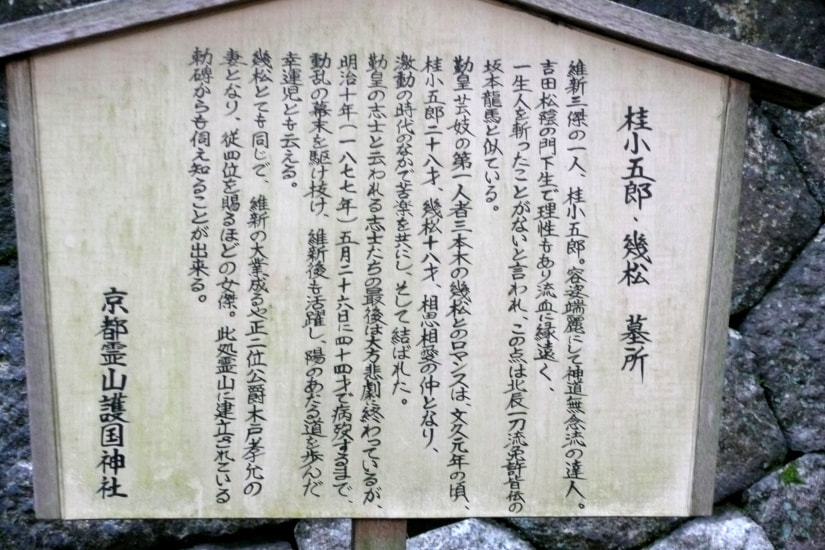 桂小五郎・幾松　墓所
維新三傑の一人、桂小五郎。容姿端麗にして神道無念流の達人。
吉田松陰の門下生で理性もあり流血に縁遠く、
一生人を斬ったことがないと言われ、この点は北辰一刀流免許皆伝の
坂本龍馬と似ている。
勤皇芸妓の第一人者三本木の幾松とのロマンスは、文久元年の頃、
桂小五郎二十八才、幾松十八才、相思相愛の仲となり、
激動の時代のなかで苦楽を共にし、そして結ばれた。
勤皇の志士と云われる志士たちの最後は大方悲劇に終わっているが、
明治十年（一八七七年）五月二十六日に四十四才で病歿するまで、
動乱の幕末を駆け抜け、維新後も活躍し、陽のあたる道を歩んだ
幸運児とも云える。
幾松とても同じで、維新の大業成るや正二位公爵木戸孝允の
妻となり、従四位を賜るほどの女傑。此処霊山に建立されている
勅碑からも伺え知ることが出来る。
京都霊山護国神社